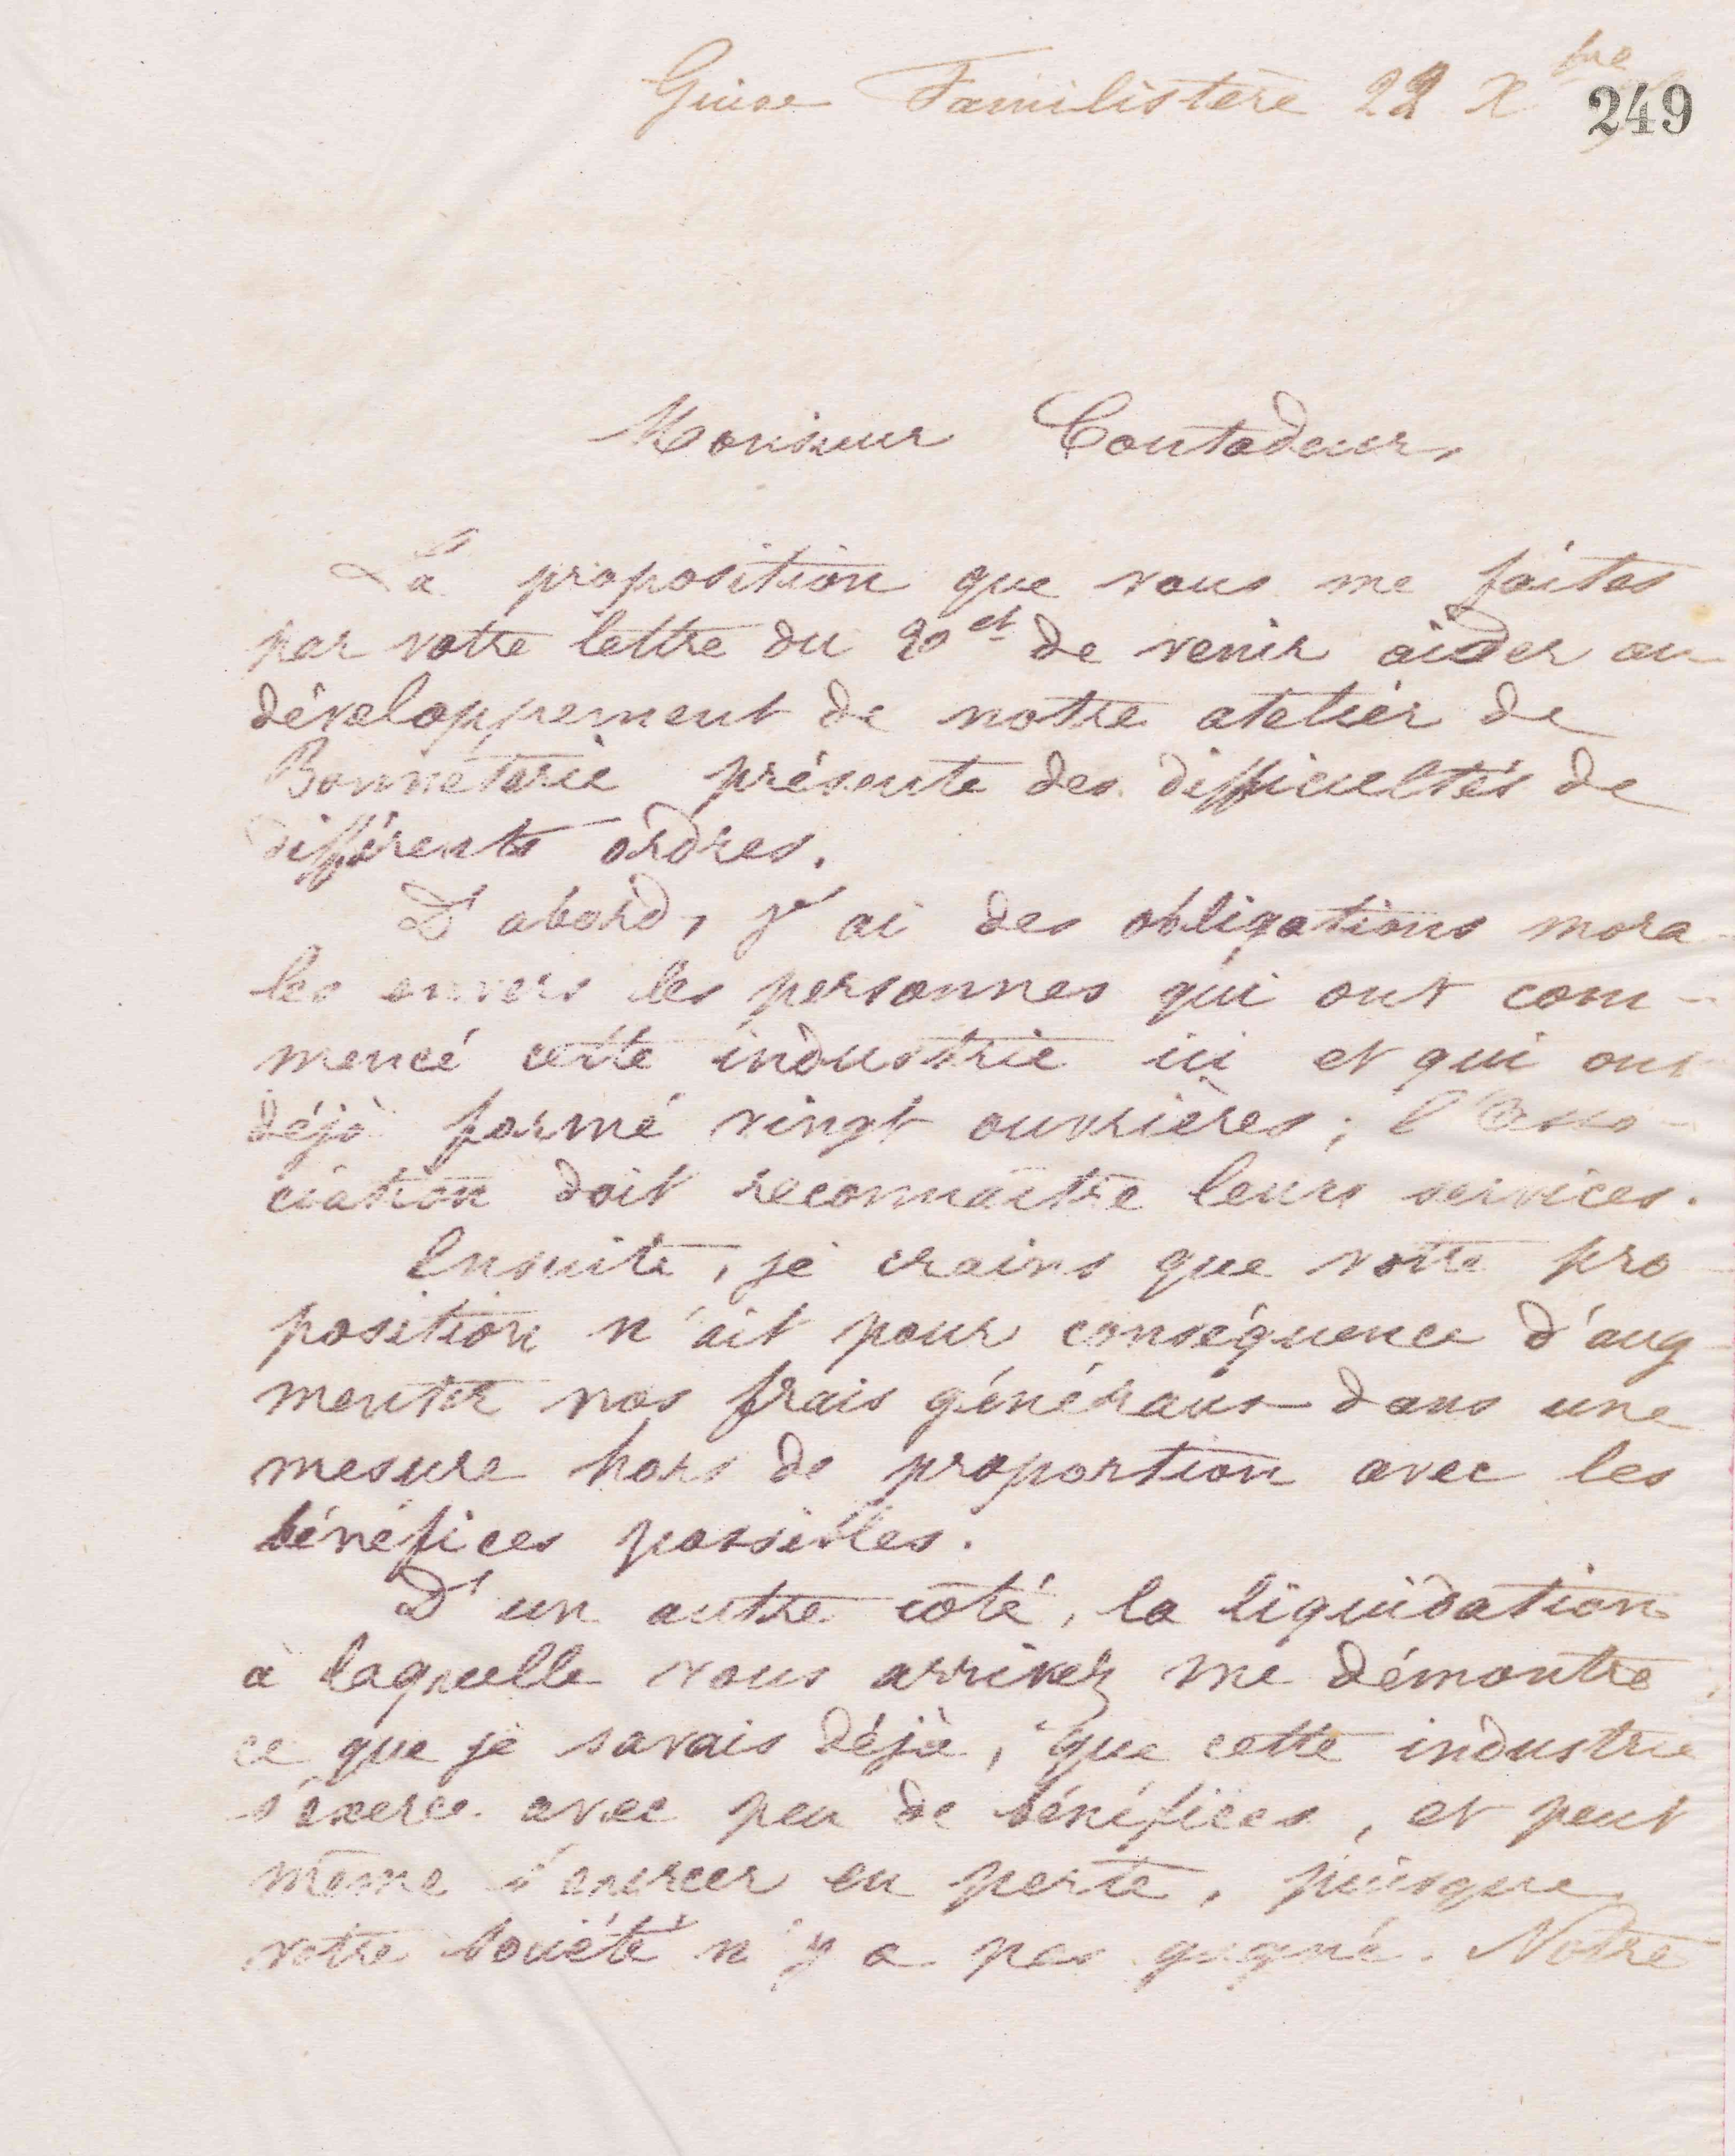 Guise Familistère 22 Xbre
249
Monsieur Contadeur,
La proposition que vous me faites
par votre lettre du 20 ct de venir aider au
développement de notre atelier de
Bonneterie présente des difficultés de
différents ordres.
D'abord, j'ai des obligations mora-
les envers les personnes qui ont com-
mencé cette industrie ici et qui ont
déjà formé vingt ouvrières ; l'Asso-
ciation doit reconnaître leurs services.
Ensuite, je crains que votre pro-
position n'ait pour conséquence d'aug-
menter nos frais généraux dans une
mesure hors de proportion avec les
bénéfices possibles.
D'un autre côté, la liquidation
à laquelle vous arrivez me démontre
ce que je savais déjà, que cette industrie
s'exerce avec peu de bénéfices, et peut
même s'exercer en perte, puisque
votre société n'y a pas gagné. Notre